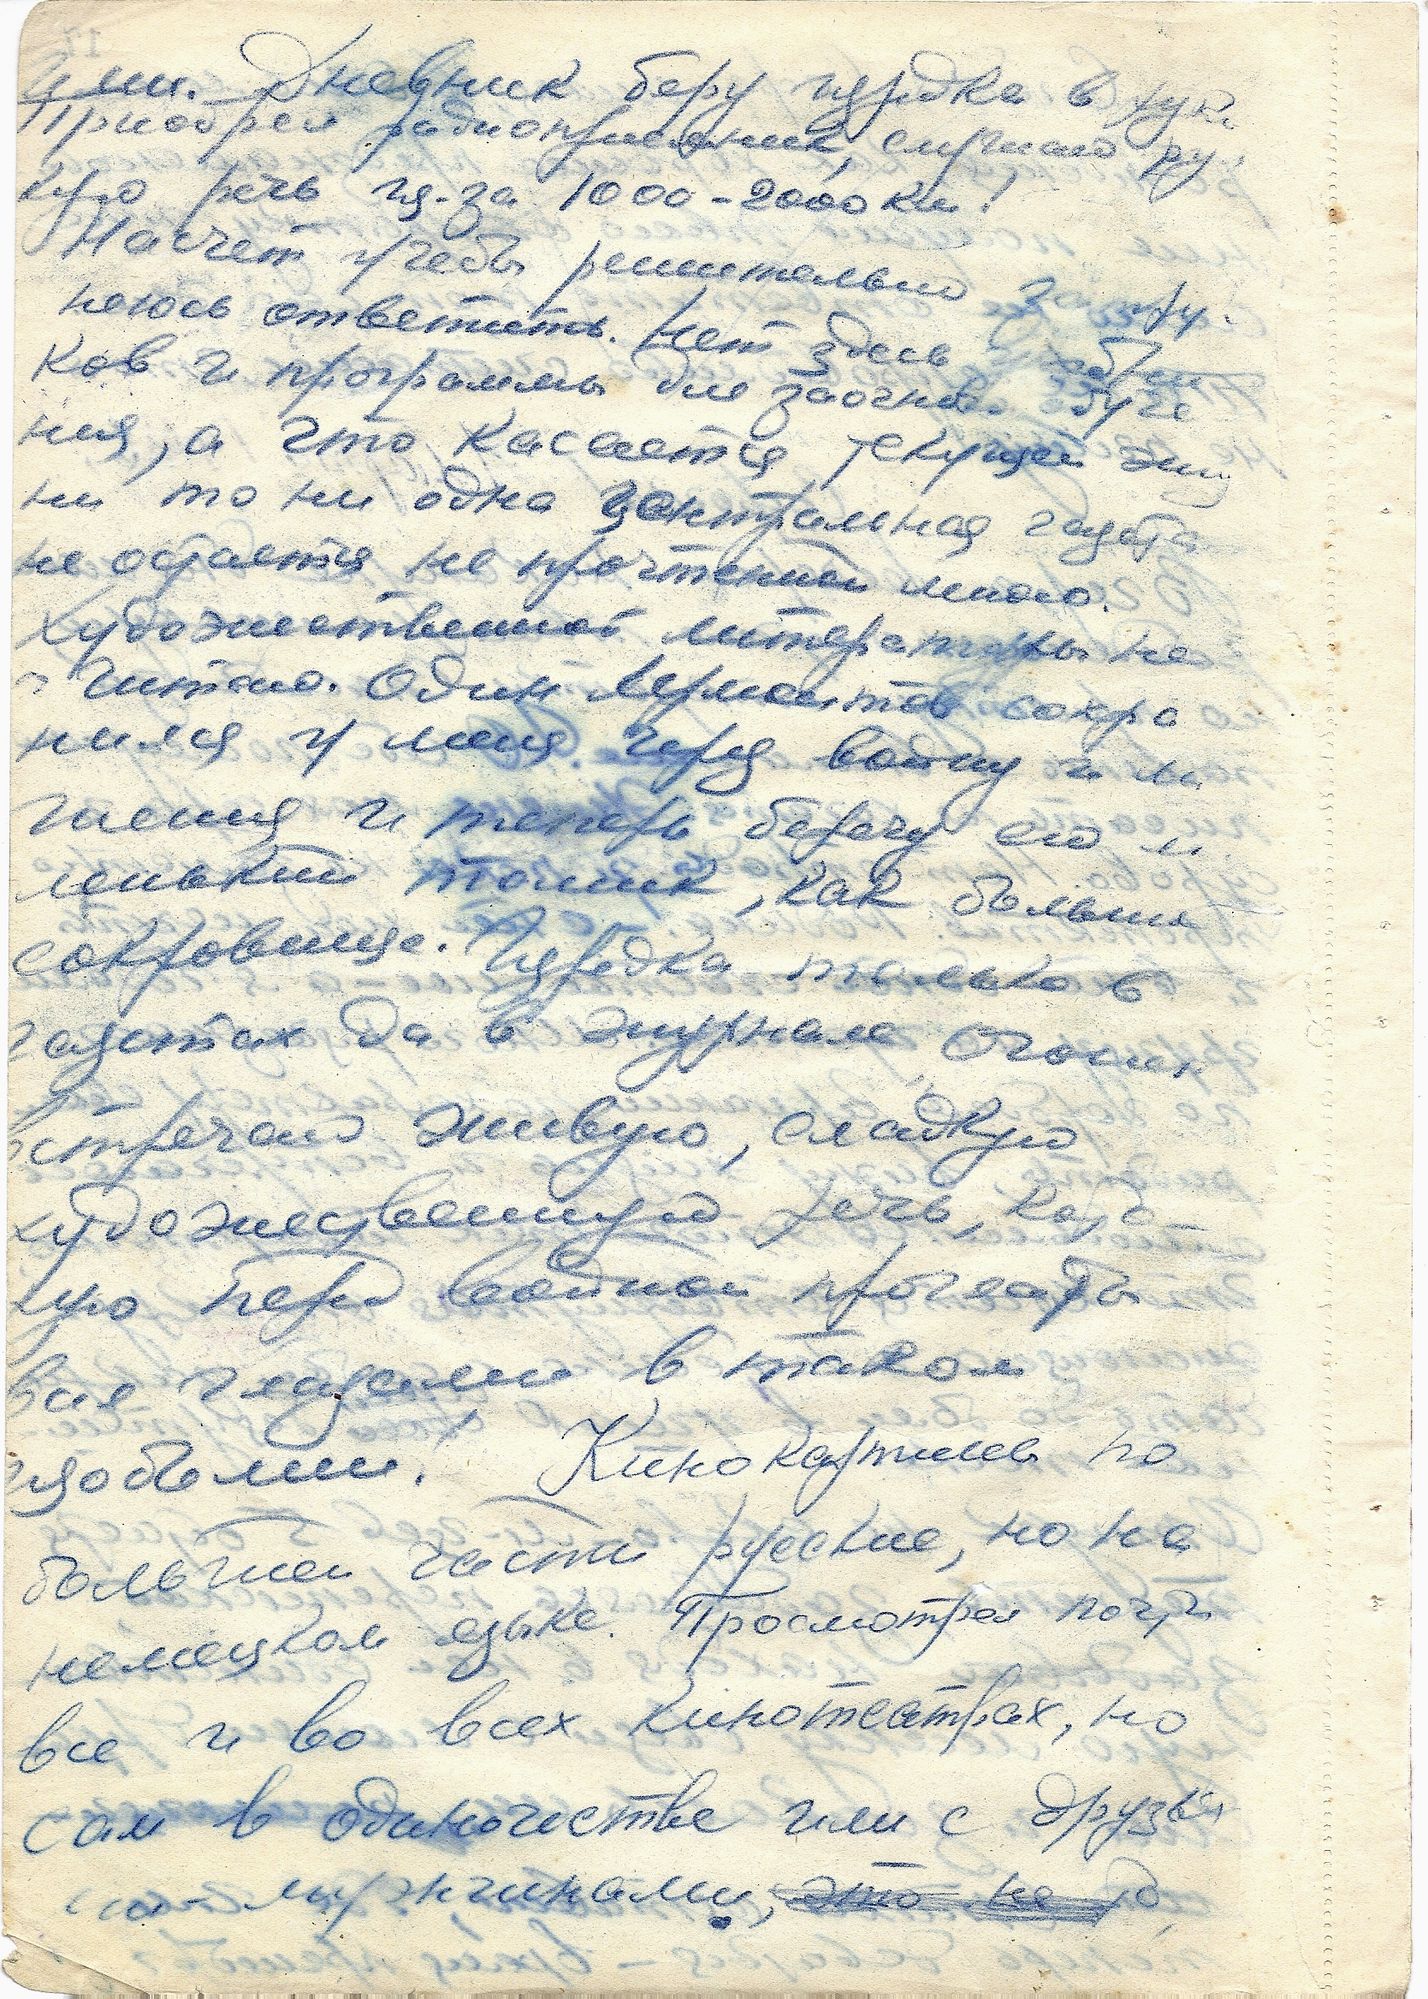 ими. Дневник беру изредка в руки
Приобрел радиоприемник, слушаю рус
кую речь из-за 1000-2000 км!
Насчет учебы решительно затру
няюсь ответить. Нет здесь
ков и программы для заочного обуче
ния, а что касается текущей жиз
ни то ни одна центральная газета
не остается не прочтенной мною.
Художественной литературы не
читаю. Один Лермонтов сохра
нился у меня через войну и ли
шения и теперь берегу его м
ленький томик, как больше
сокровище. Изредка только в
газетах да в журнале Огонек
встречаю живую, сладкую
художественную речь, кото_
рую перед войной прочеты
вая глазами в таком
изобилии! Кинокартины по
большей части русские, но на
немецком языке. Просмотрел почти
все и во всех кинотеатрах, но
сам в одиночестве или с друзья
ми-мужчинами, это не